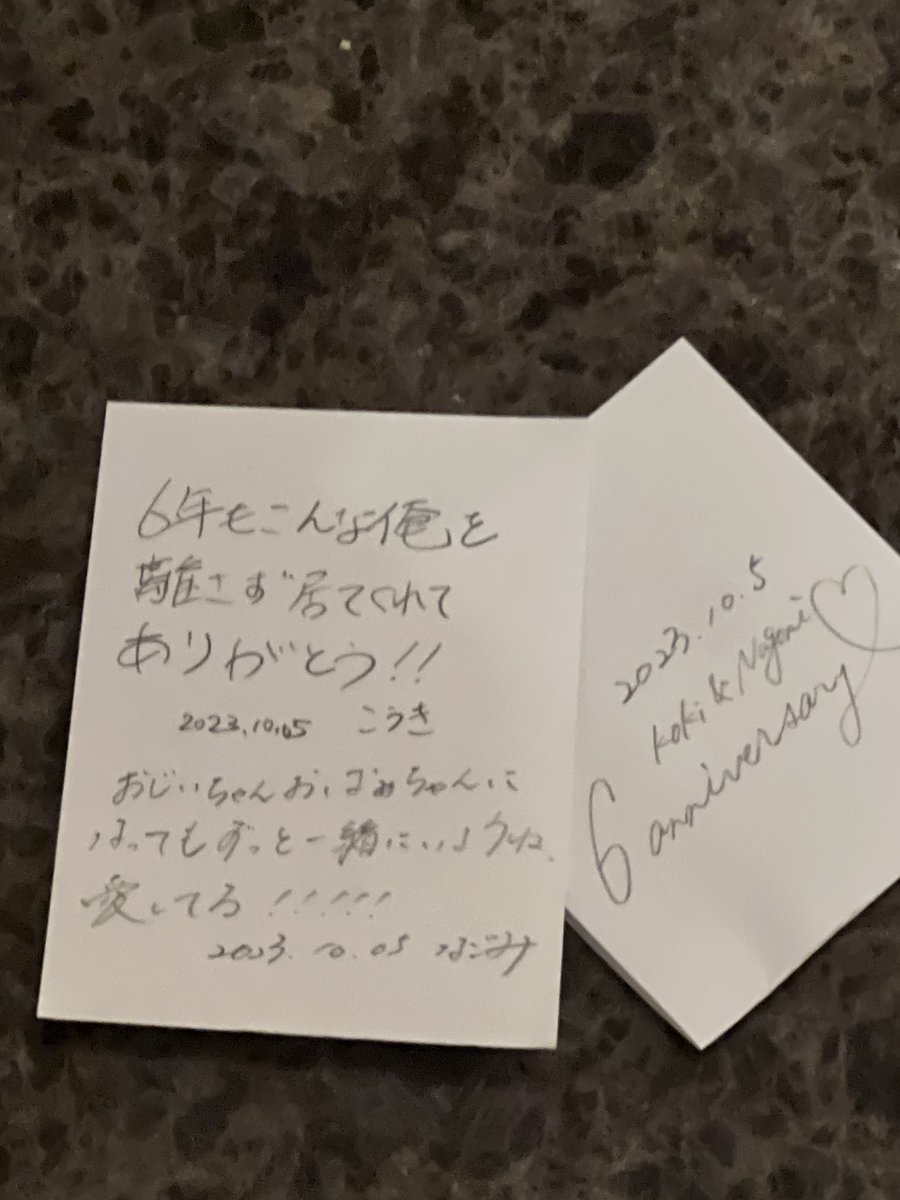 6年もこんな俺を
離さず居てくれて
ありがとう!!
2023.10.05 こうき
おじいちゃんおばあちゃんに
なってもずっと一緒にいようね、
愛してる!!!!!
2023.10.05 なごみ
2023.10.5
Koki & Nagomi♡
6 anniversary